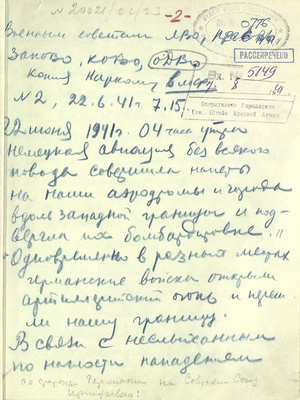 -2-
Военным советам ЛВО,
ЗапОВО, КОВО, ОдВО
Копия Наркому В.мор.
РАССЕКРЕЧЕНО
Вх. № 5149
8
Оперативное Управление
Ген. Штаба Красной Армии
N 2, 22.6.41 г. 7.15
22 июня 1941 г. 04 часа утра
немецкая авиация без всякого
повода совершила налеты
на наши аэродромы и города
вдоль западной границы и под-
вергла их бомбардировке.
Одновременно в разных местах
германские войска открыли
артиллерийский огонь и переш-
ли нашу границу.
В связи с неслыханным
по наглости нападением
со стороны Германии на Советский Союз
приказываю: